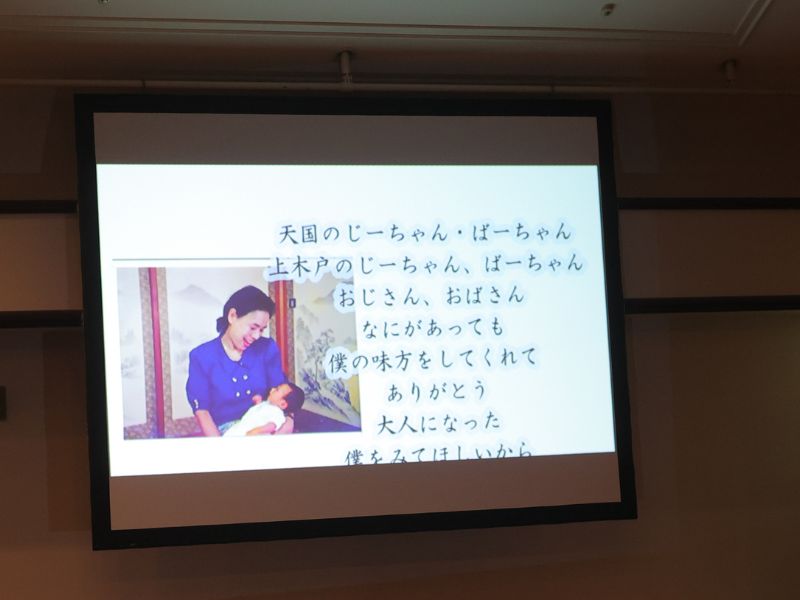 天国のじーちゃん・ばーちゃん
上木戸のじーちゃん、ばーちゃん
おじさん、おばさん
なにがあっても
僕の味方をしてくれて
ありがとう
大人になった
僕をみてほしいから